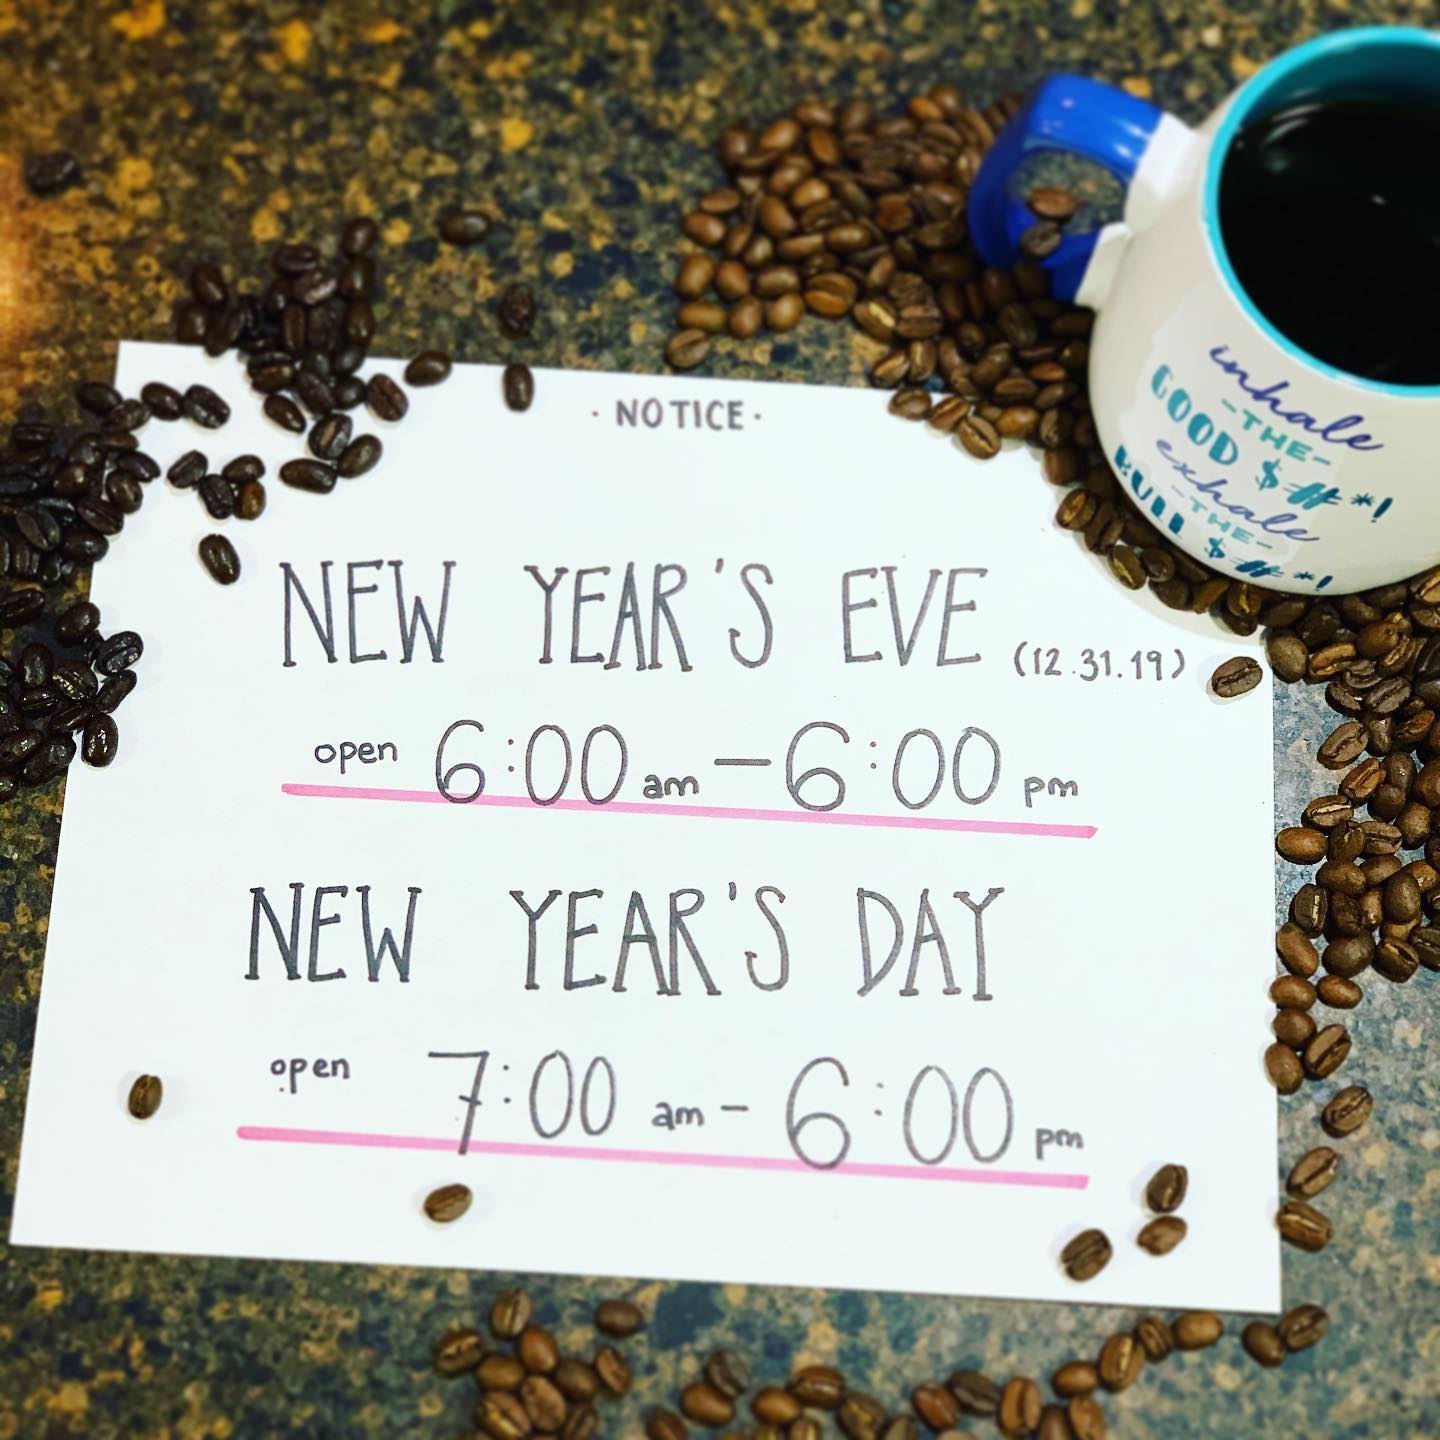 · NOTICE ·
NEW YEAR'S EVE (12.31.19)
open 6:00 am – 6:00 pm
NEW YEAR'S DAY
open 7:00 am – 6:00 pm
inhale
-THE-
GOOD $#*!
exhale
-THE-
BULL $#*!